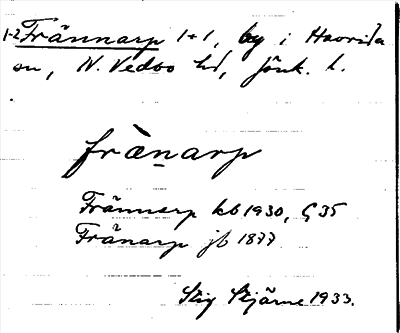 1-2 Frännarp 1+1, by i Haurida
sn, N. Vedbo hd, Jönk. l.
frä̀ṉarp
Frännarp kb 1930, G 35
Fränarp jb 1877
Stig Skjärne 1933.